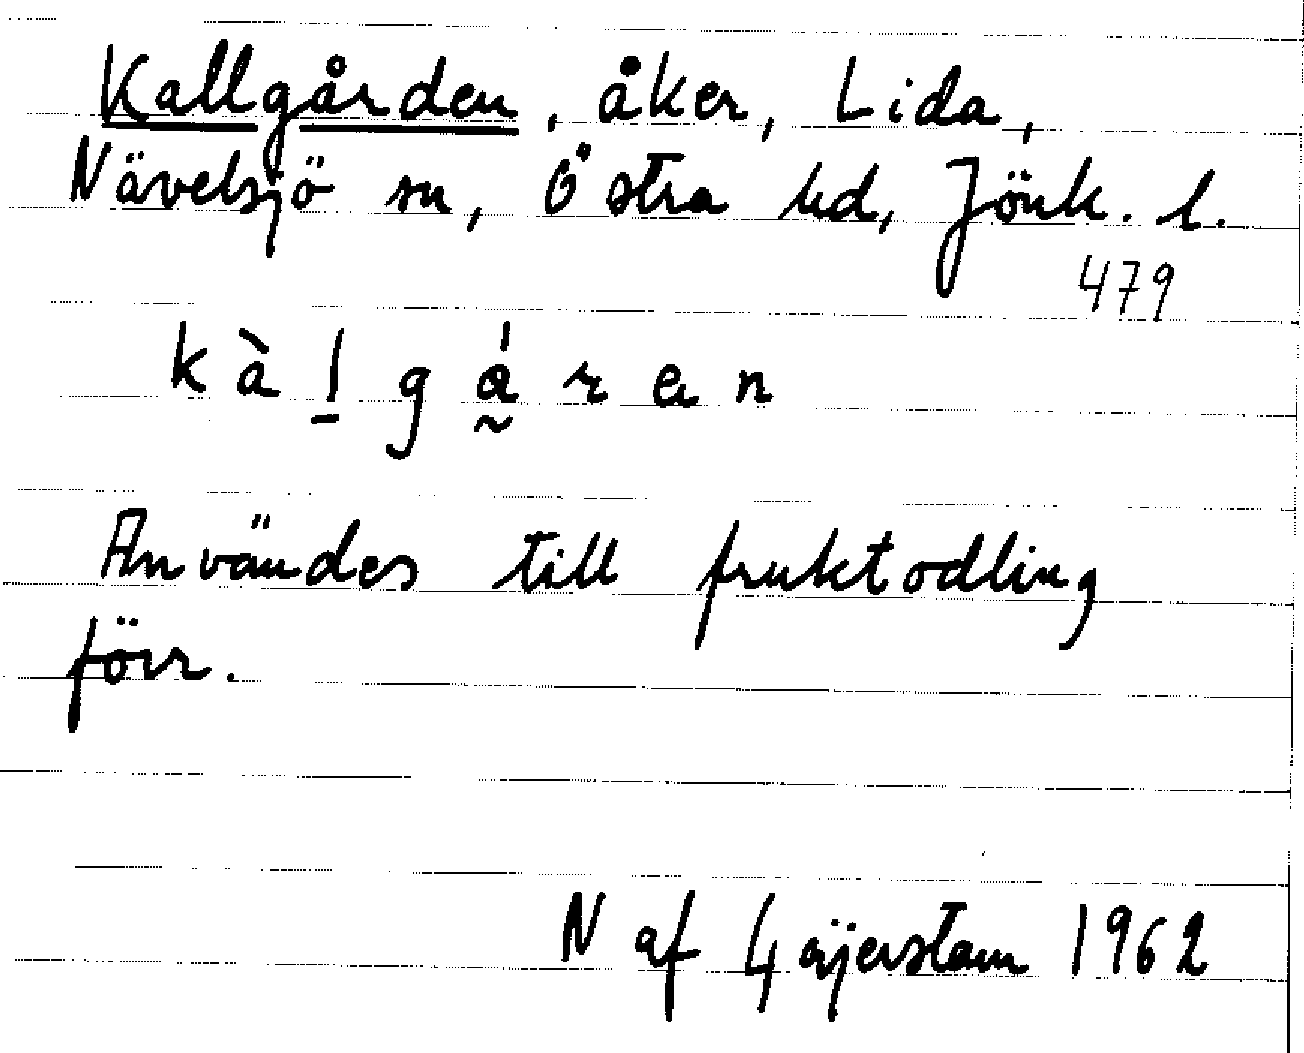 Kallgården, åker, Lida,
Nävelsjö sn, Östra hd, Jönk. l.
479
kàl̠gá̰ren
Användes till fruktodling
förr.
N af Gäijerstam 1962